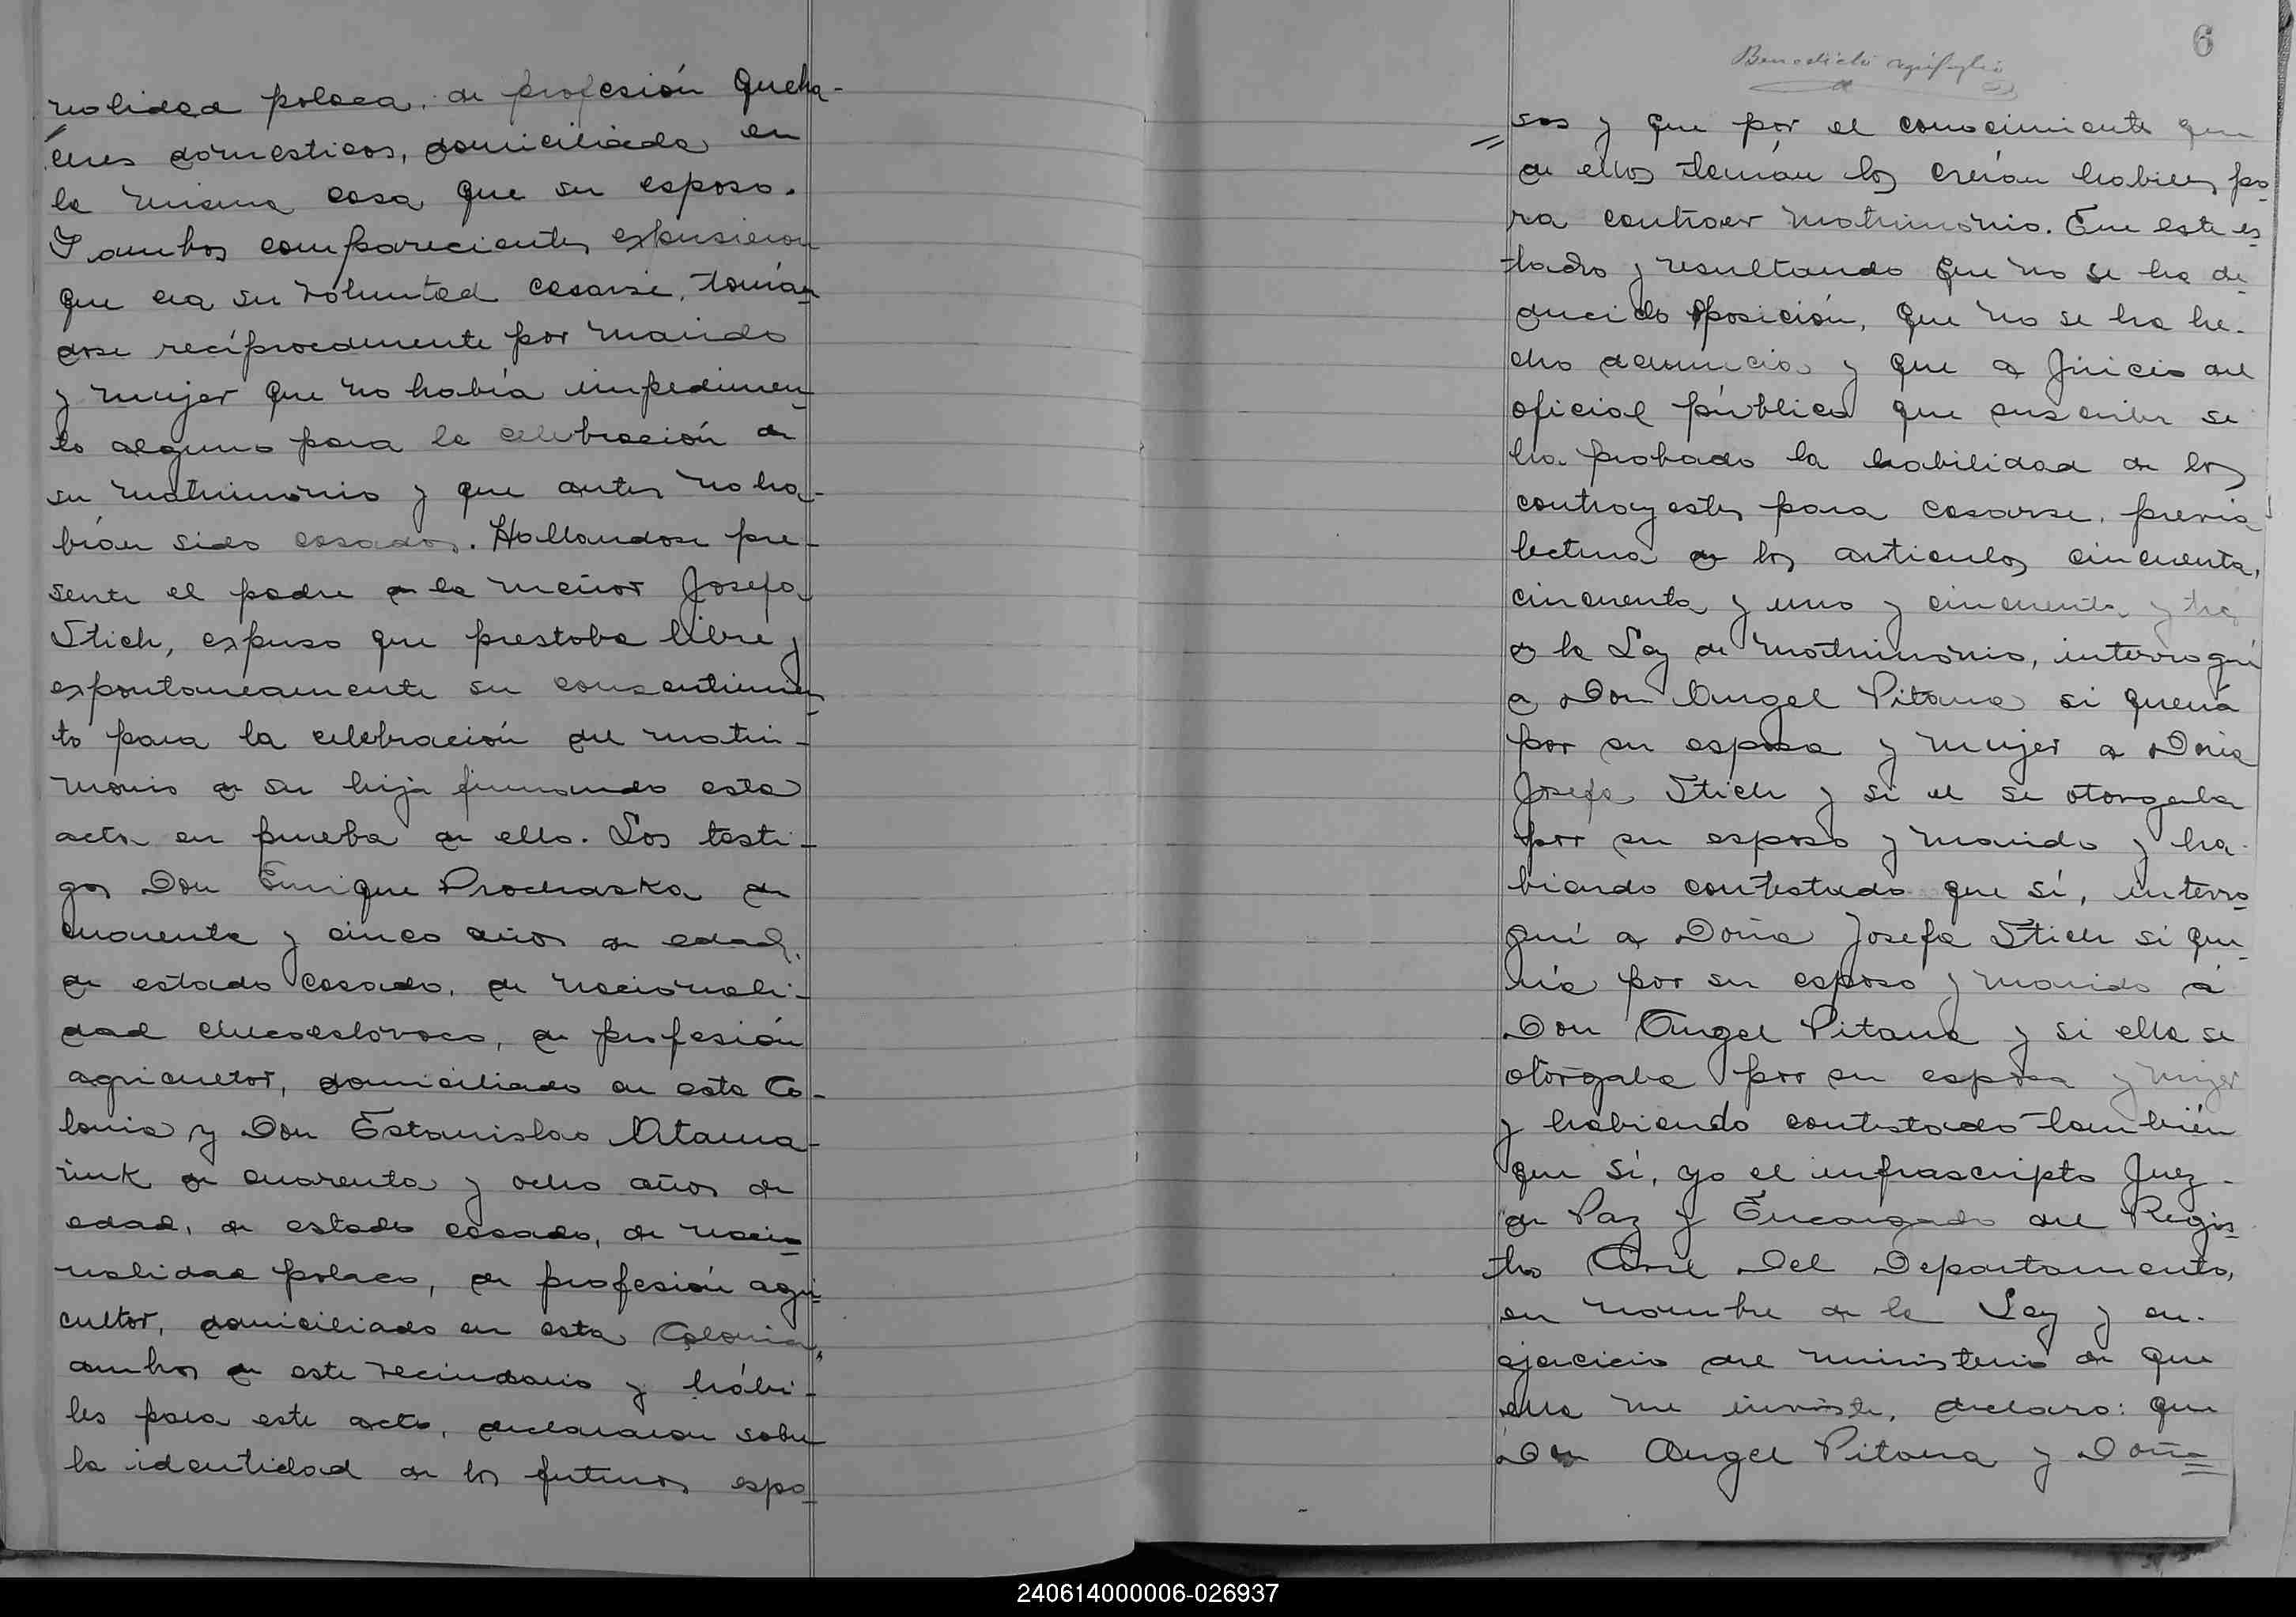 nalidad polaca, de profesión Queha-
ceres domesticos, domiciliada en
la misma casa que su esposo.
I ambos comparecientes expusieron
que era su voluntad casarse, tomán
dose recíprocamente por marido
y mujer que no había impedimen
to alguno para la celebración de
su matrimonio y que antes no ha-
bían sido casados. Hallandose pre-
sente el padre de la menor Josefa
Stich, expuso que prestaba libre y
expontaneamente su consentimien
to para la celebración del matri-
monio de su hija firmando esta
acta en prueba de ello. Los testi-
gos Don Enrique Prochaska de
cuarenta y cinco años de edad,
de estado casado, de nacionali-
dad checoeslovaco, de profesión
agricultor, domiciliado en esta Co-
lonia y Don Estanislao Atama-
ñuk de cuarenta y ocho años de
edad, de estado casado, de nacio
nalidad polaco, de profesión agri
cultor, domiciliado en esta Colonia,
ambos de este vecindario y hábi-
les para este acto, declararon sobre
la identidad de los futuros espo
6
Benedicto
sos y que por el conocimiento que
de ellos tenían los creían habiles pa
ra contraer matrimonio. En este es
tado y resultando que no se ha de
ducido oposición, que no se ha he-
cho denuncia y que a juicio del
oficial público que suscribe se
ha probado la habilidad de los
contrayestes para casarse, previa
lectura de los articulos cincuenta,
cincuenta y uno y cincuenta y tres
de la Ley de Matrimonio, interrogué
a Don Angel Pitana si quería
por su esposa y mujer a Doña
Josefa Stich y si el se otorgaba
por su esposo y marido y ha-
biendo contestado que sí, interro
gué a Doña Josefa Stich si que
ría por su esposo y marido á
Don Angel Pitana y si ella se
otorgaba por su esposa y mujer
y habiendo contestado también
que sí, yo el infrascripto Juez
de Paz y Encargado del Regis
tro Civil Del Departamento,
en nombre de la Ley y en
ejercicio del ministerio de que
ella me inviste, declaro: que
Don Angel Pitana y Doña
240614000006-026937